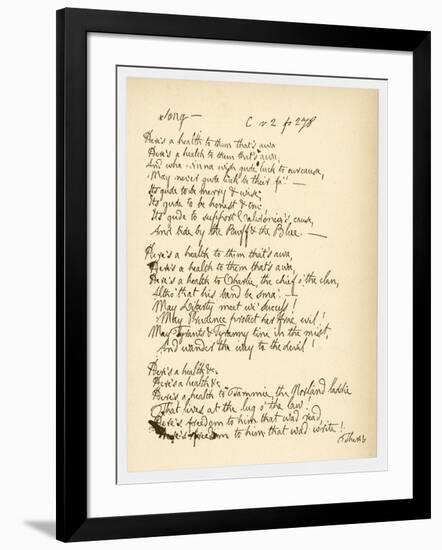 Song — C v 2 fo 278
Here's a health to them that's awa
Here's a health to them that's awa,
And wha winna wish gude luck to our cause,
May never gude luck be their fa' —
Its gude to be merry & wise,
Its gude to be honest & true
Its gude to support Caledonia's cause,
And bide by the Buff & the Blue. —
Here's a health to them that's awa,
Here's a health to them that's awa,
Here's a health to Charlie, the chief o' the clan,
Altho' that his band be sma'. —
May Liberty meet wi' success!
May Prudence protect her frae evil!
May Tyrants & Tyranny tine in the mist,
And wander the way to the devil!
Here's a health &c.
Here's a health &c
Here's a health to Tammie, the Norland laddie
That lives at the lug o' the law!
Here's freedom to him that wad read,
Here's freedom to him that wad write!